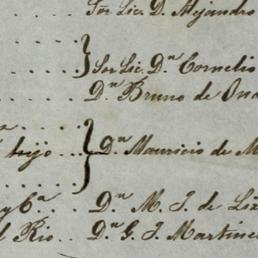 Sor Lic. D. Alejandro
Sor Lic. Dn Cornelio
Dn Bruno de
a
hijo Dn Mauricio de M
y Ca Dn M. J. de
l Rio Dn G. J. Martine